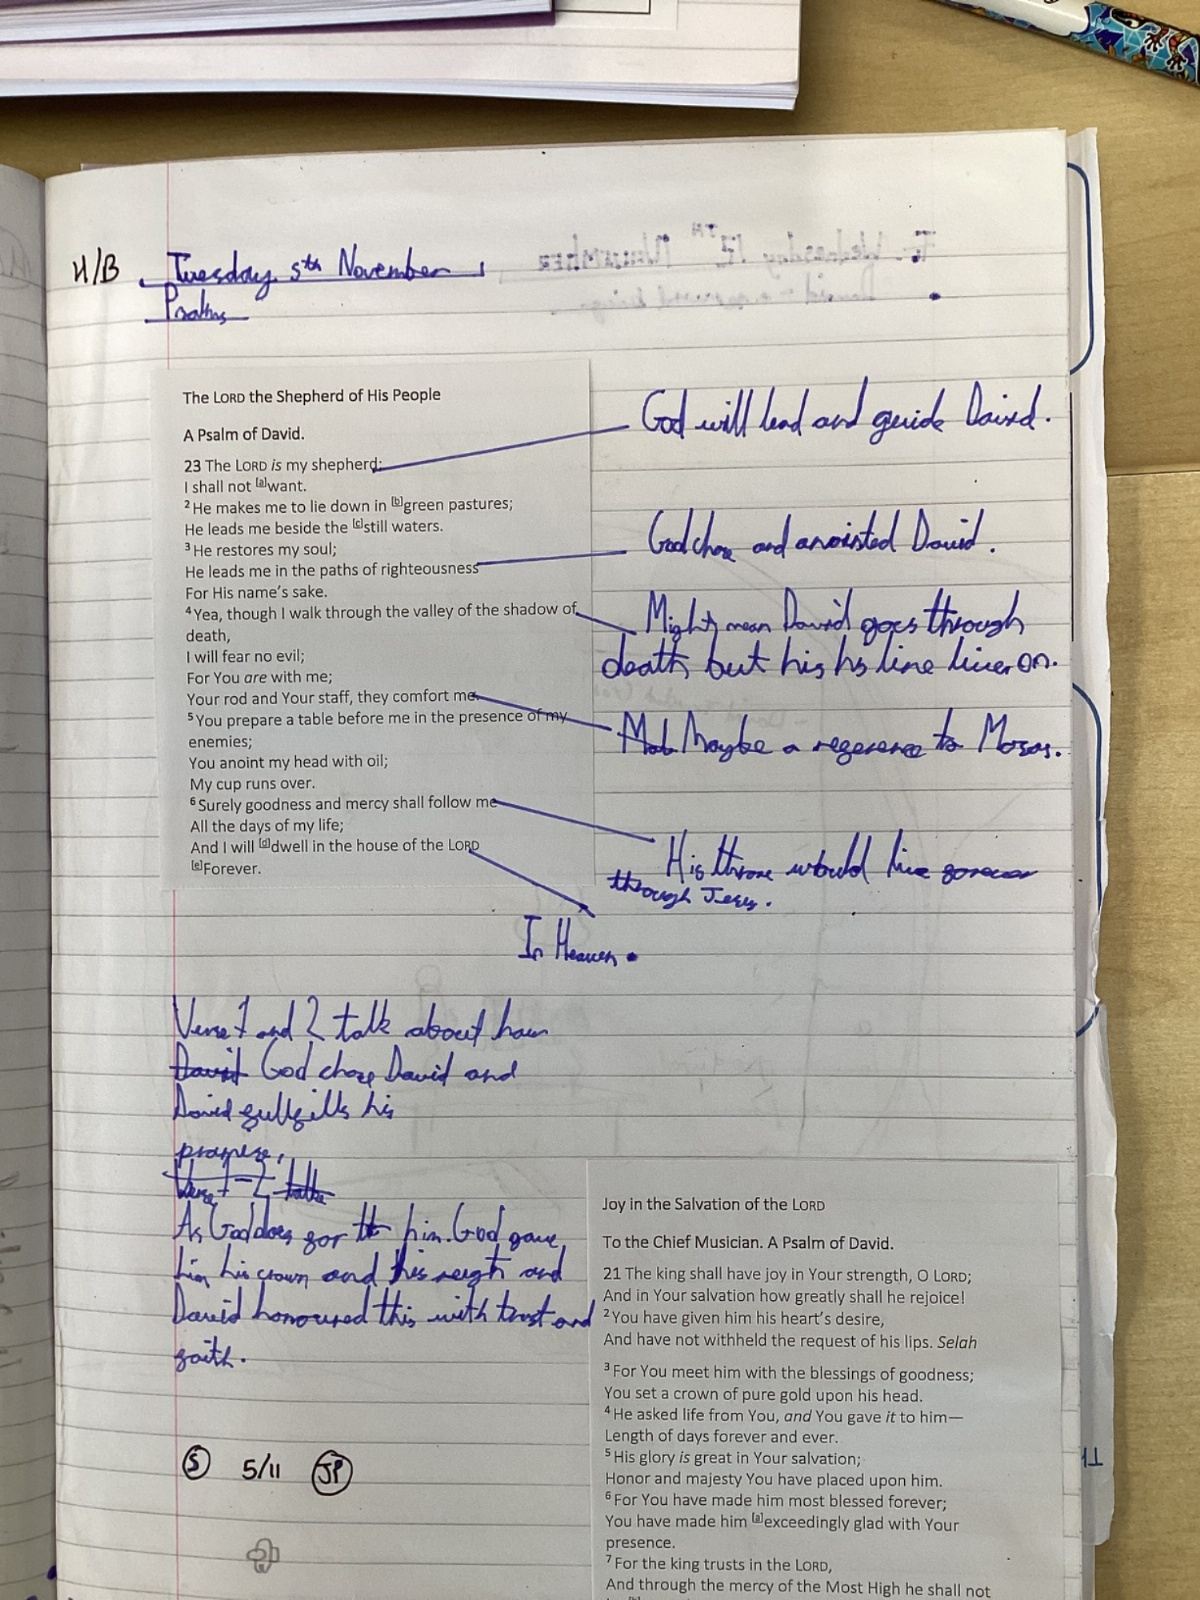 H/B Tuesday 5th November
Psalms
The LORD the Shepherd of His People
A Psalm of David.
23 The LORD is my shepherd;
I shall not [a]want.
2 He makes me to lie down in [b]green pastures;
He leads me beside the [c]still waters.
3 He restores my soul;
He leads me in the paths of righteousness
For His name's sake.
4 Yea, though I walk through the valley of the shadow of
death,
I will fear no evil;
For You are with me;
Your rod and Your staff, they comfort me.
5 You prepare a table before me in the presence of my
enemies;
You anoint my head with oil;
My cup runs over.
6 Surely goodness and mercy shall follow me
All the days of my life;
And I will [d]dwell in the house of the LORD
[e]Forever.
God will lead and guide David.
God chose and anointed David.
Might mean David goes through
death but his hs line lives on.
Maybe a regerence to Moses.
His throne would live gorever
through Jesus.
In Heaven.
Verse 1 and 2 talk about how
David God chose David and
David gullgills his
promise.
Verse 1-2 talk
As God does gor him. God gave
him his crown and this reign and
David honoured this with trust and
gaith.
S 5/11 JP
Joy in the Salvation of the LORD
To the Chief Musician. A Psalm of David.
21 The king shall have joy in Your strength, O LORD;
And in Your salvation how greatly shall he rejoice!
2 You have given him his heart's desire,
And have not withheld the request of his lips. Selah
3 For You meet him with the blessings of goodness;
You set a crown of pure gold upon his head.
4 He asked life from You, and You gave it to him—
Length of days forever and ever.
5 His glory is great in Your salvation;
Honor and majesty You have placed upon him.
6 For You have made him most blessed forever;
You have made him [a]exceedingly glad with Your
presence.
7 For the king trusts in the LORD,
And through the mercy of the Most High he shall not